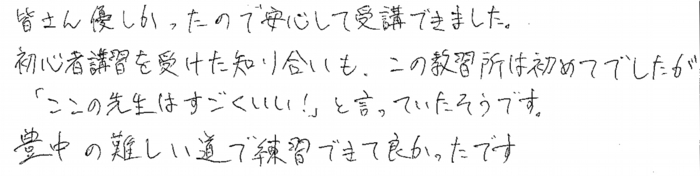 皆さん優しかったので安心して受講できました。
初心者講習を受けた知り合いも、この教習所は初めてでしたが
「ここの先生はすごくいい!」と言っていたそうです。
豊中の難しい道で練習できて良かったです